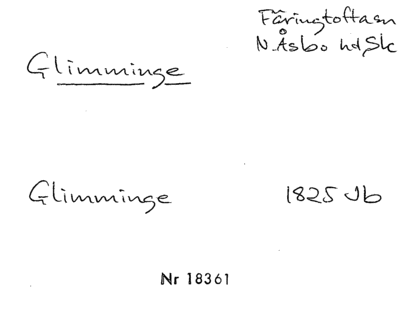 Färingtofta sn
N. Åsbo hd, Sk
Glimminge
Glimminge 1825 Jb
Nr 18361